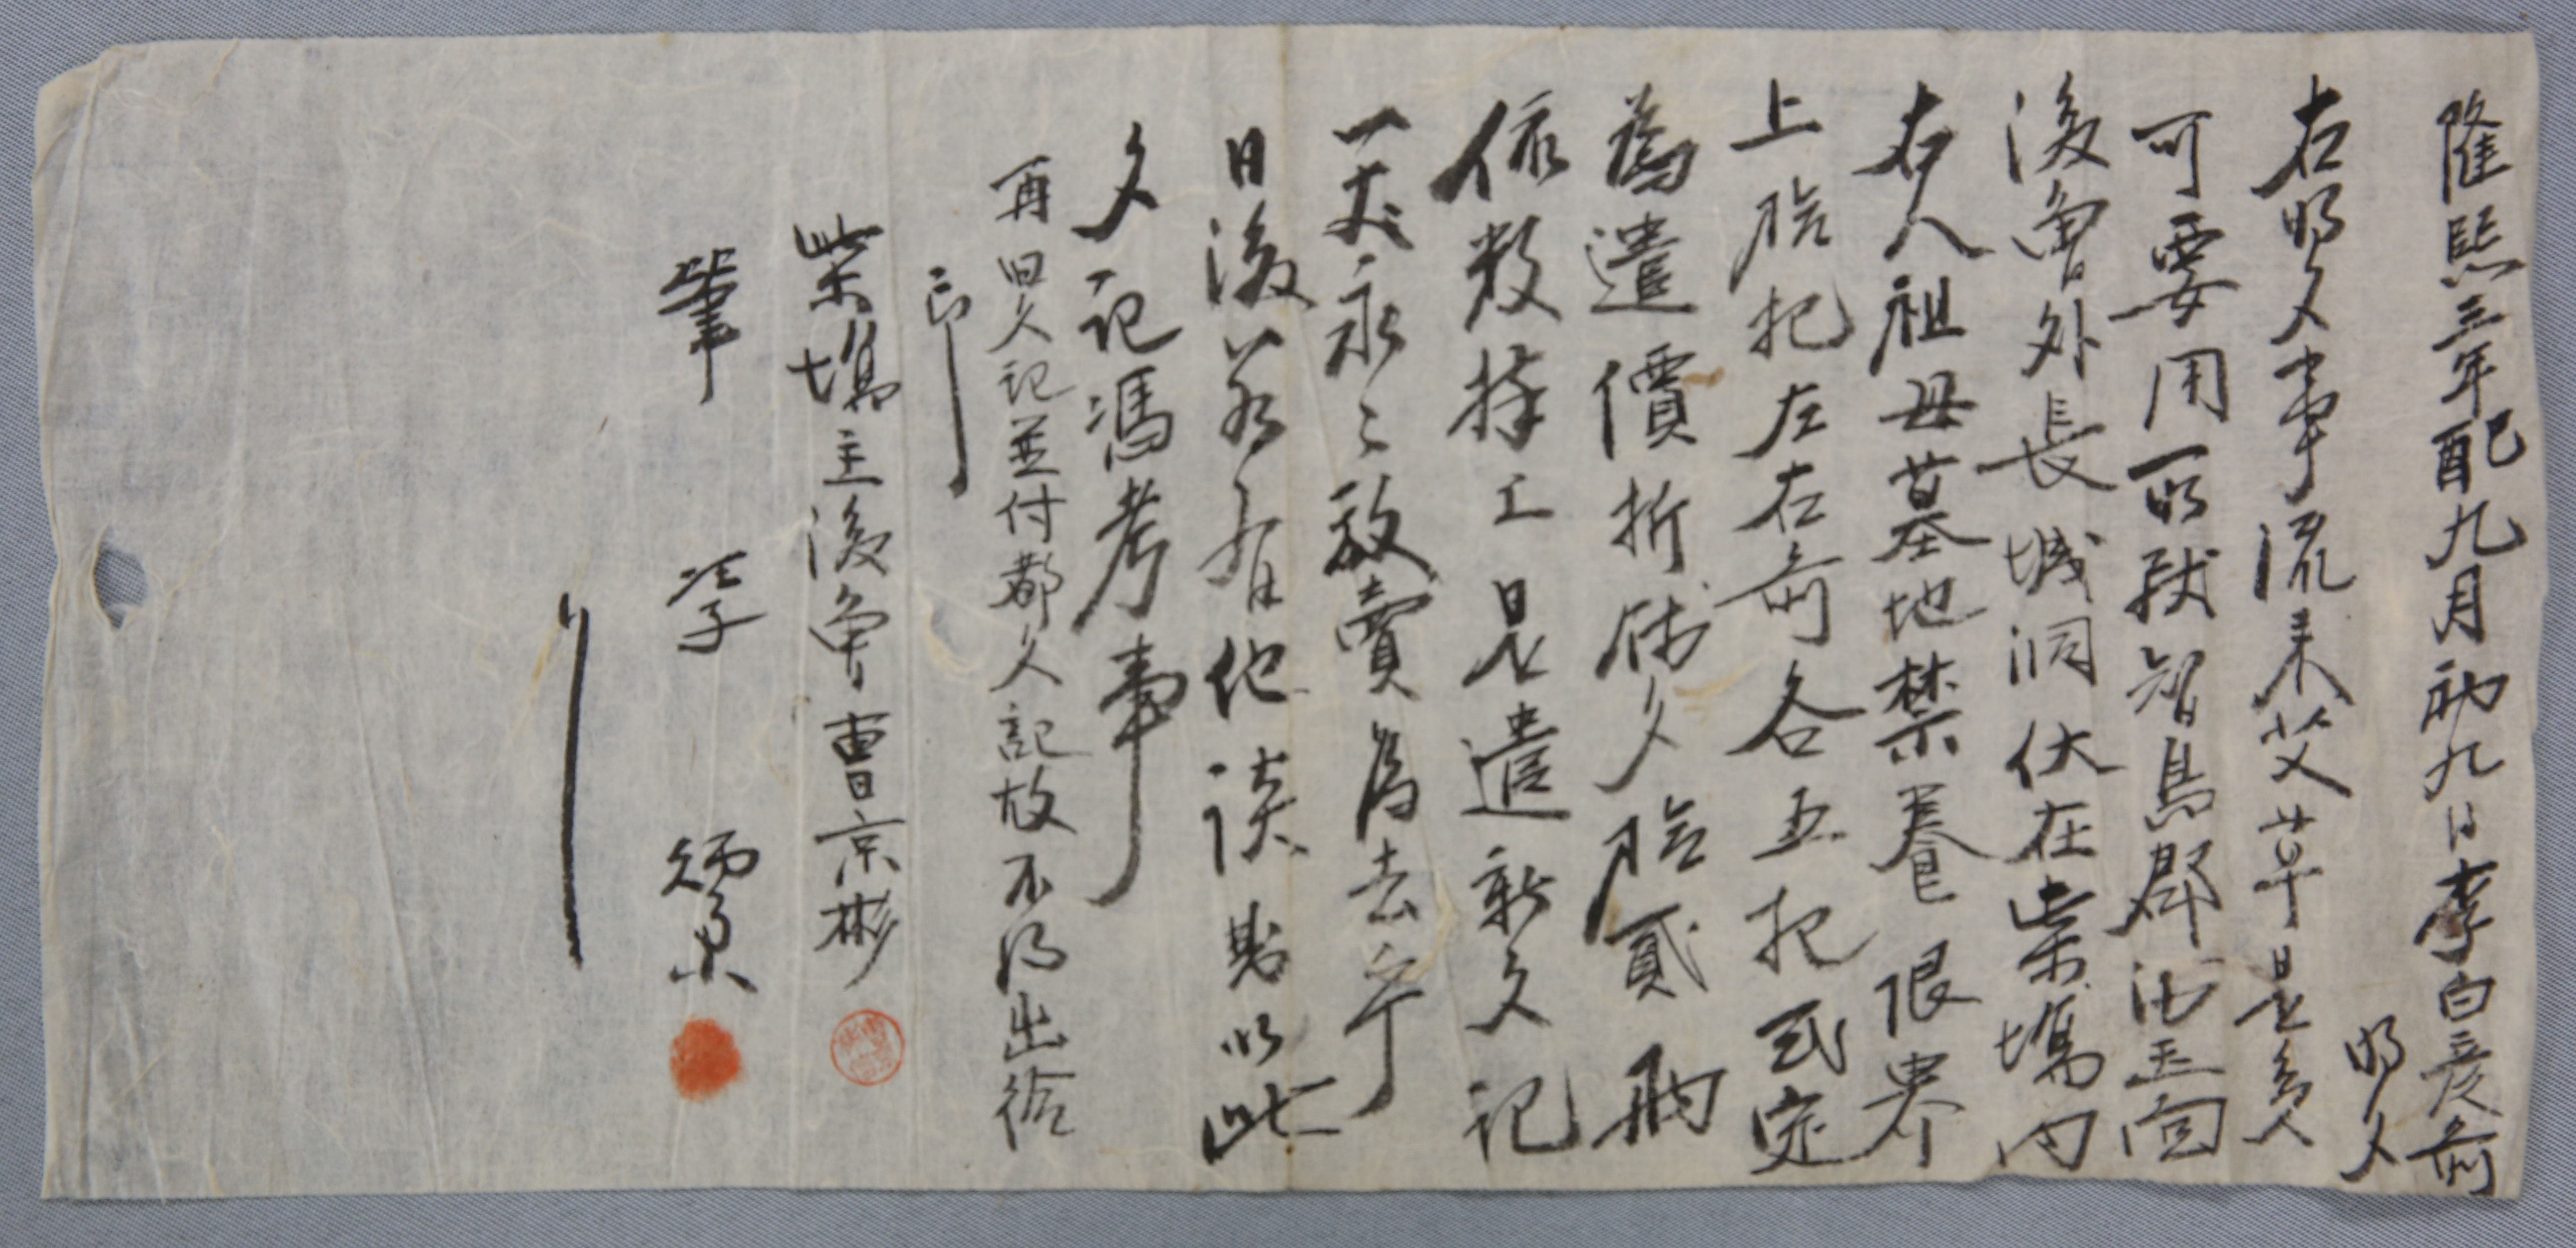 隆熙三年己酉九月初九日李白彦前
明文
右明文事流来艾草是多人
可要用一所狀智島郡沙玉面
後曾外長城洞伏在柴場内
右人祖母墓地禁養限界
上階把左右前各五把式定
為遣價折錢文階貳兩
依數捧上是遣新文記
一丈永々放賣為去乎
日後若有他談畢以此
文記憑考事
再旧文記並付都文記故不得出給
印
柴場主後曾曹京彬
筆 李 炳柬